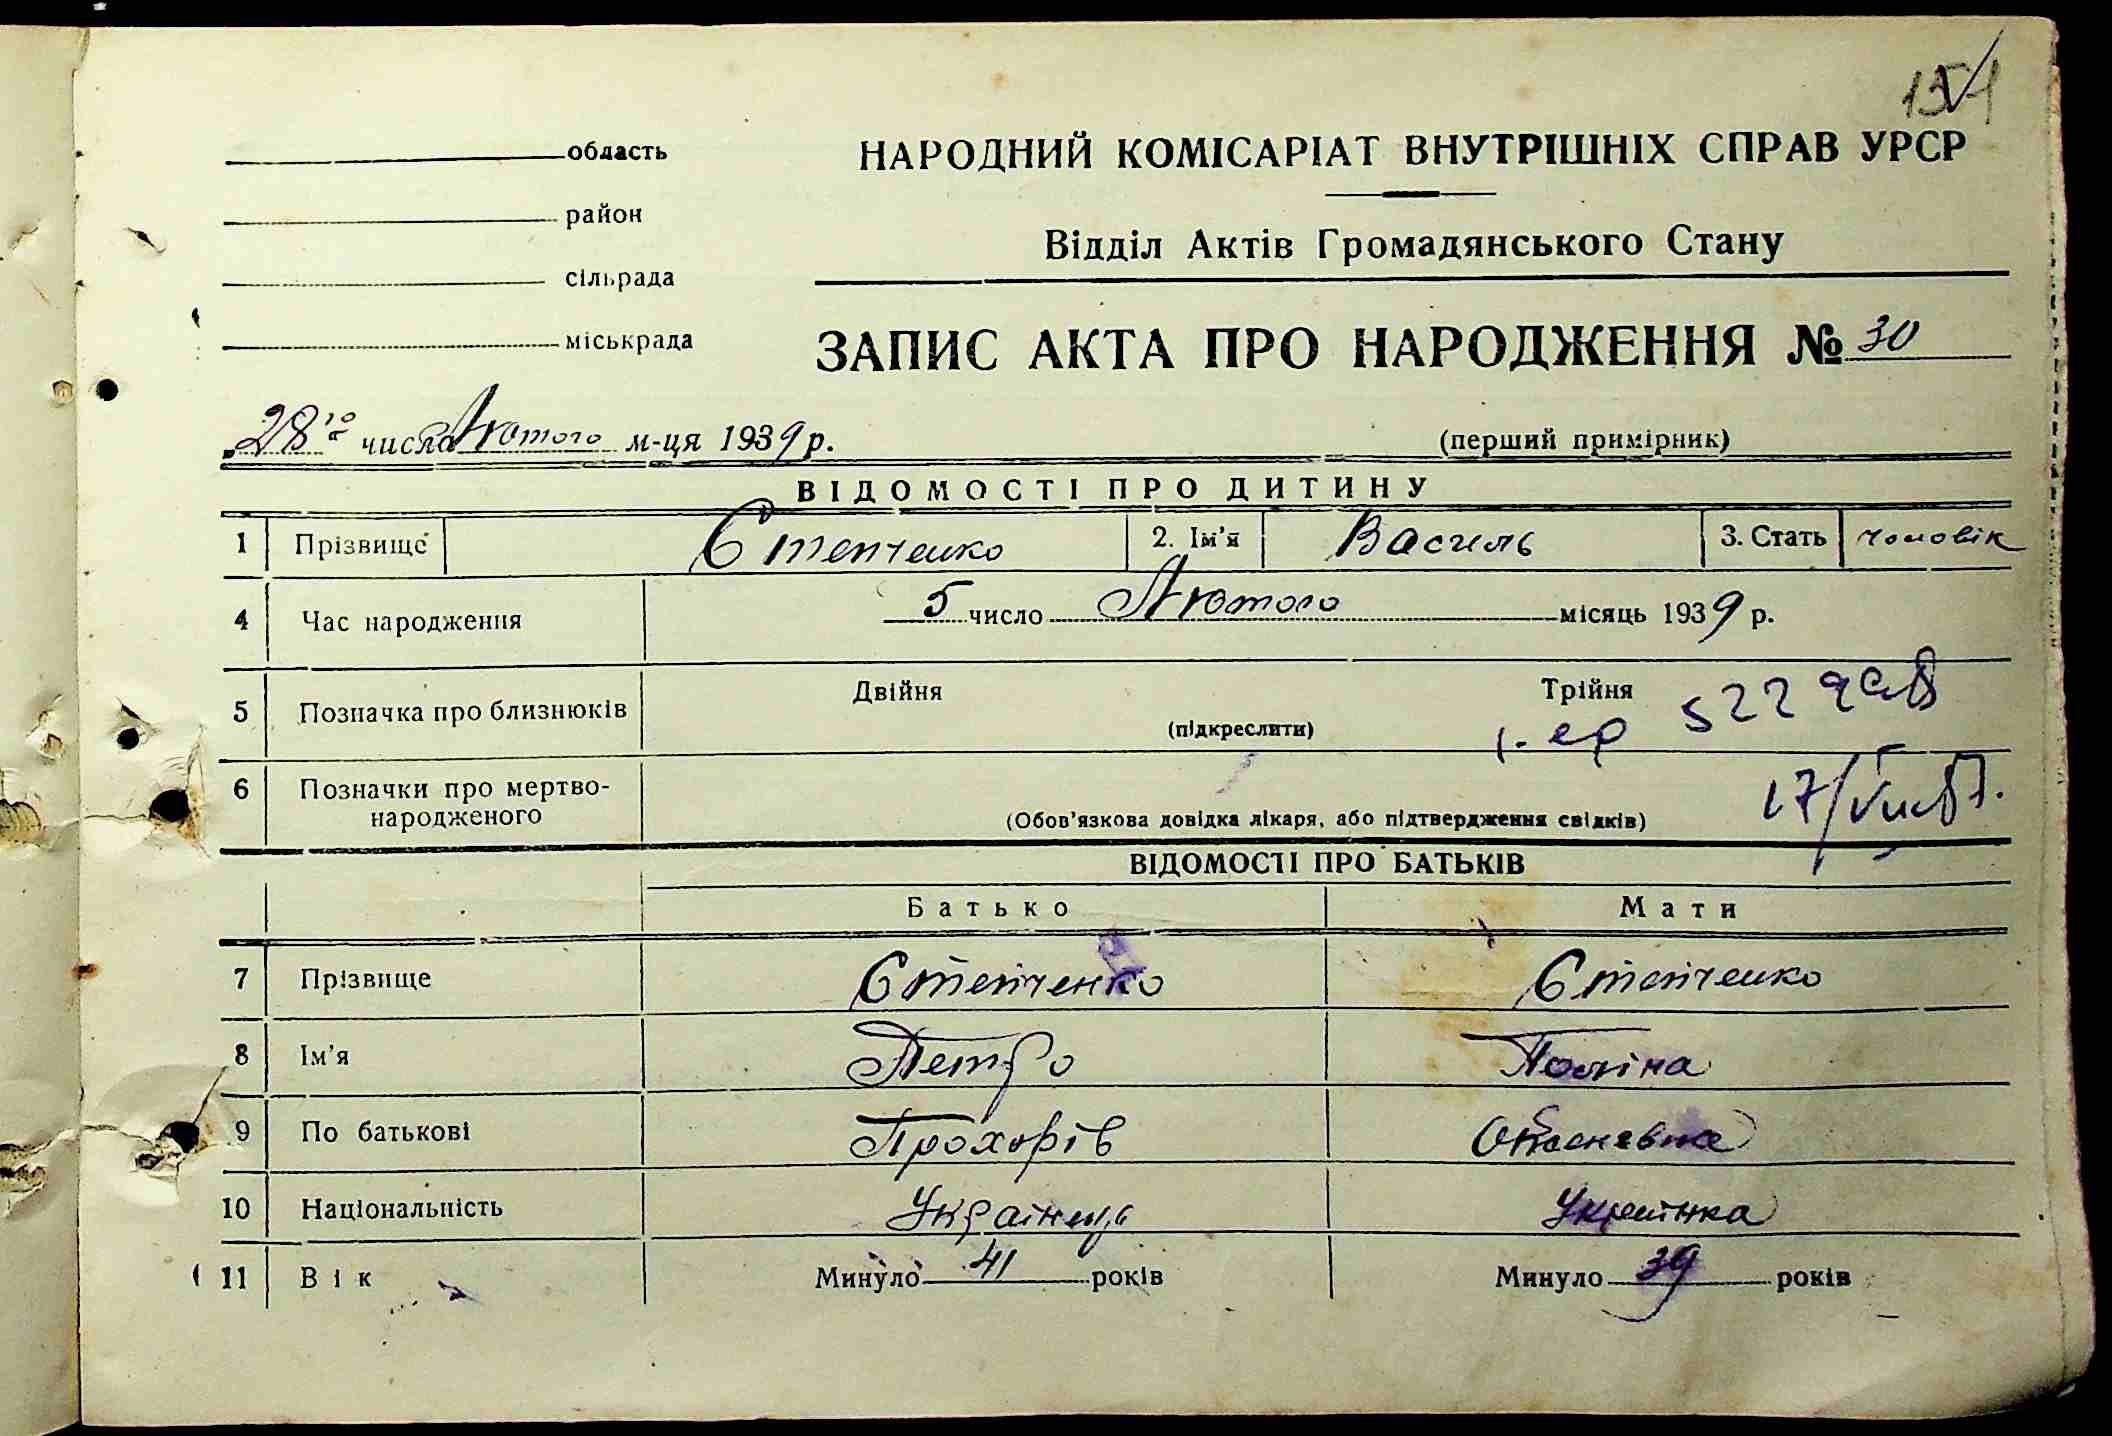 область
НАРОДНИЙ КОМІСАРІАТ ВНУТРІШНІХ СПРАВ УРСР
район
Відділ Актів Громадянського Стану
сільрада
міськрада
ЗАПИС АКТА ПРО НАРОДЖЕННЯ № 30
28го числа Лютого м-ця 1939 р.
(перший примірник)
ВІДОМОСТІ ПРО ДИТИНУ
1 Прізвище Степченко 2. Ім'я Василь 3. Стать чоловік
4 Час народження 5 число Лютого місяць 1939 р.
5 Позначка про близнюків Двійня Трійня
(підкреслити)
6 Позначки про мертво-
народженого (Обов'язкова довідка лікаря, або підтвердження свідків)
ВІДОМОСТІ ПРО БАТЬКІВ
Батько Мати
7 Прізвище Степченко Степченко
8 Ім'я Петро Поліна
9 По батькові Прохорів
10 Національність Українець Українка
11 Вік Минуло 41 років Минуло 39 років